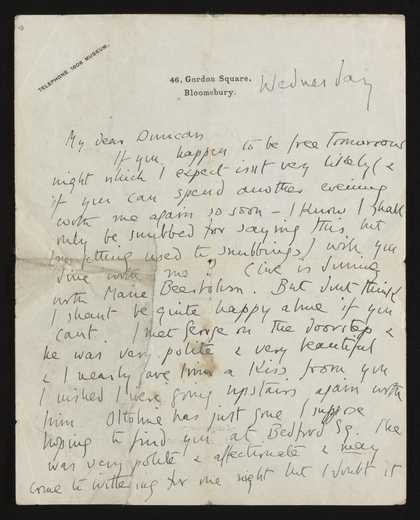 TELEPHONE 1608 MUSEUM.
46, Gordon Square,
Bloomsbury.
Wednesday
My dear Duncan
If you happen to be free tomorrow
night which I expect isnt very likely (&
if you can spend another evening
with me again so soon – I know I shall
only be snubbed for saying this, but
getting used to snubbings) wish you
dine with me? Clive is dining
with Marie Beerbohm. But dont think
I shant be quite happy alone if you
cant. I met George on the doorstep &
he was very polite & very beautiful
& I nearly gave him a kiss from you
I wished I were going upstairs again with
him. Ottoline has just gone I suppose
hoping to find you at Bedford Sq. She
was very polite & affectionate & may
come to Wittering for one night but I doubt it